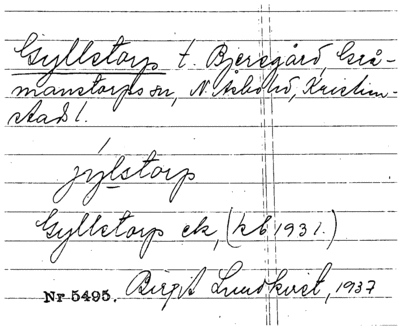 Gyllstorp t. Bjersgård, Grå-
manstorps sn, N. Åsbo hd, Kristian-
stads l.
jýlstorp
Gyllstorp ek, (kb 1931.)
Nr 5495. Birgit Lundkvist, 1937